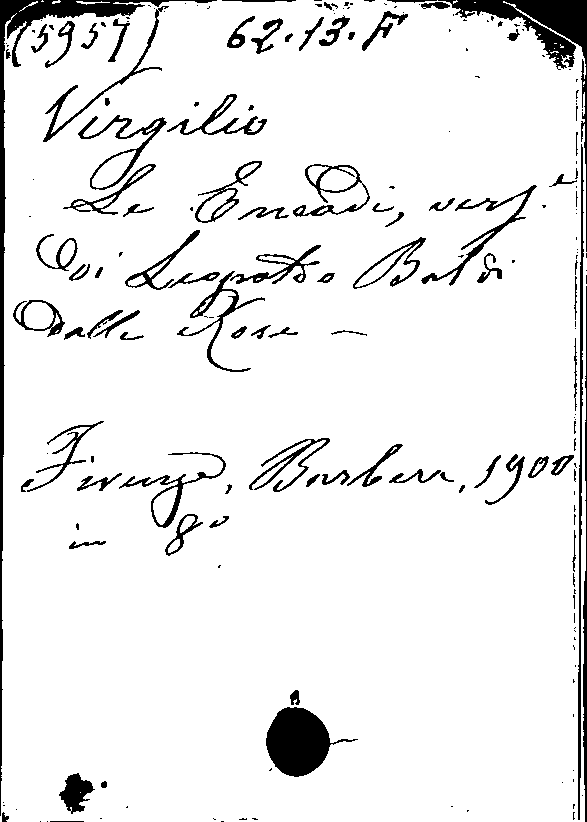 (5957) 62.13.F
Virgilio
Le Eneadi, vers.e
Di Leopoldo Baldi
Dalle Rose —
Firenze, Barbera, 1900
in 8º